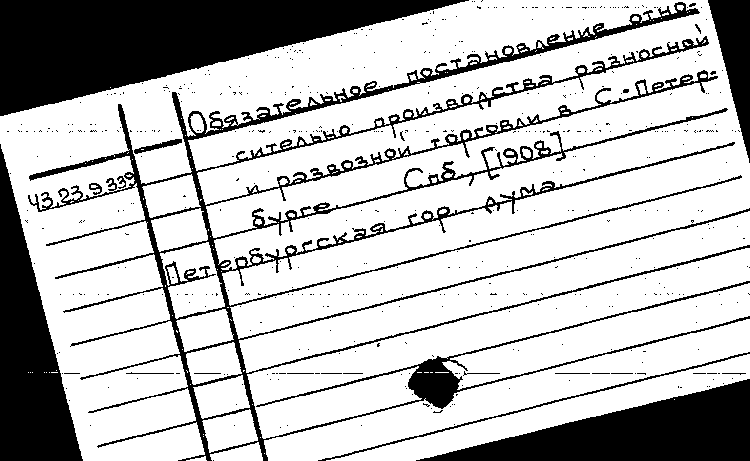 Обязательное постановление отно-
сительно производства разносной
и развозной торговли в С.-Петер-
43.23.9.339
бурге. Спб., [1908].
Петербургская гор. дума.